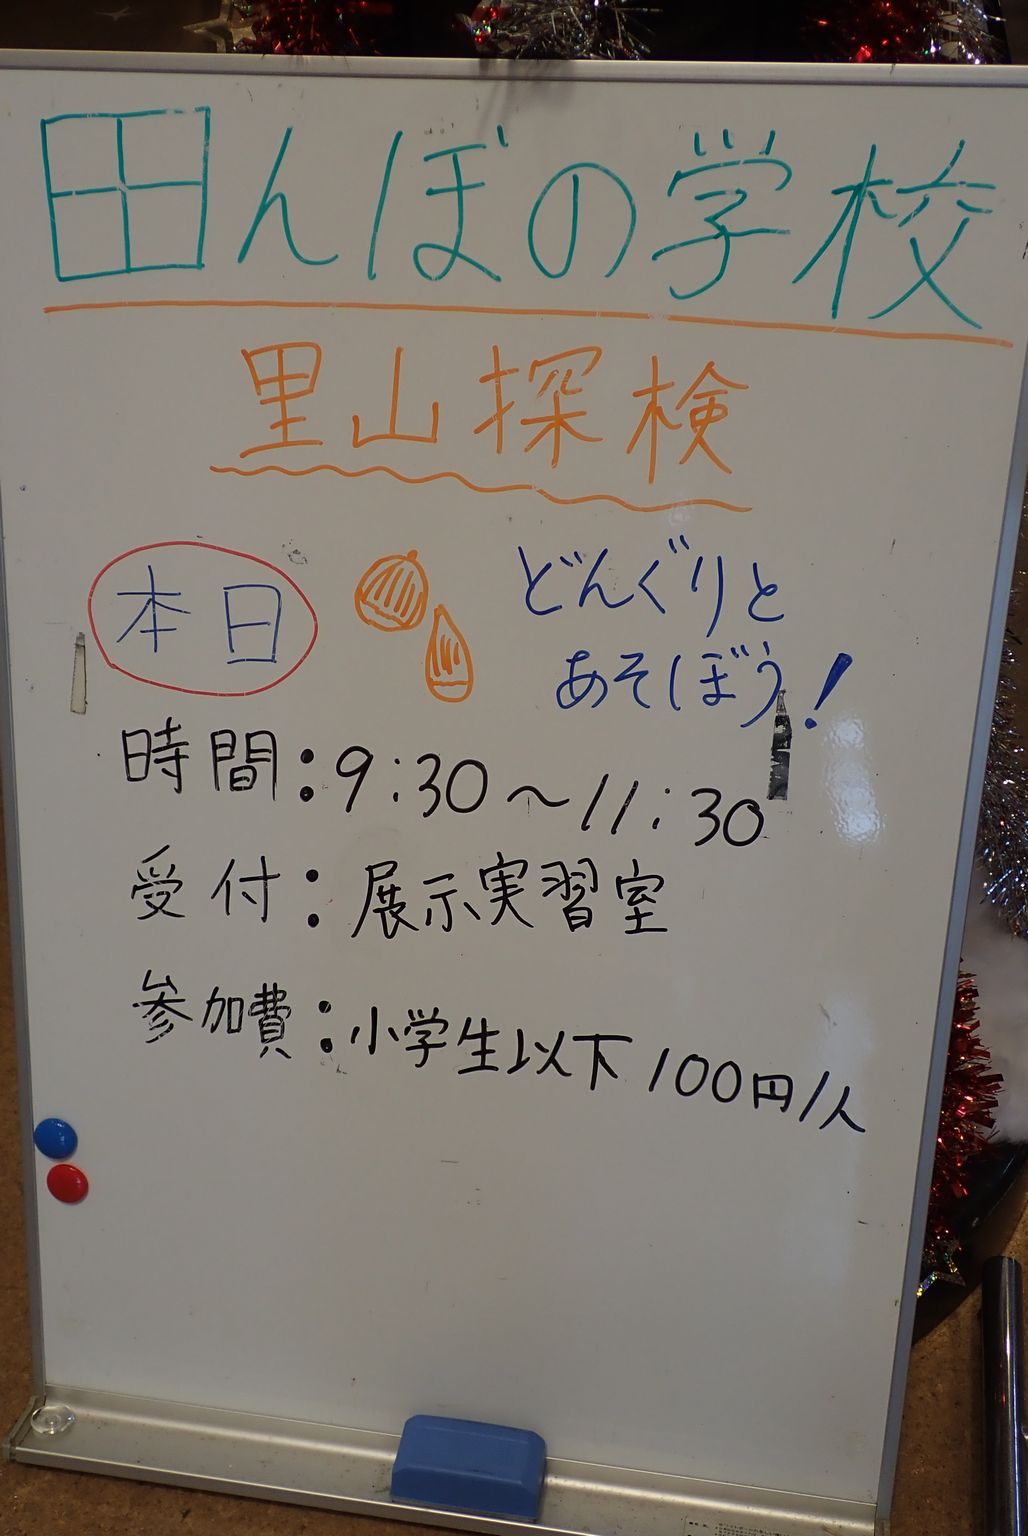 田んぼの学校
里山探検
本日
どんぐりと
あそぼう!
時間:9:30〜11:30
受付:展示実習室
参加費:小学生以下100円/人